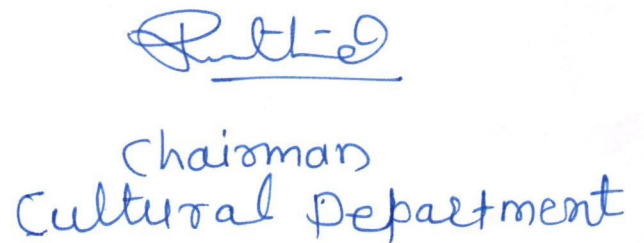 Chairman
Cultural Department